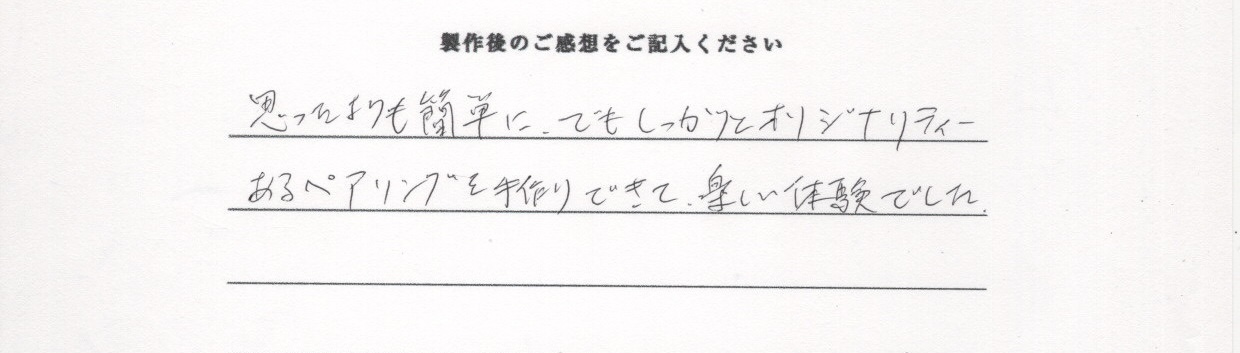 製作後のご感想をご記入ください
思ったよりも簡単に、でもしっかりとオリジナリティー
あるペアリングを手作りできて、楽しい体験でした。